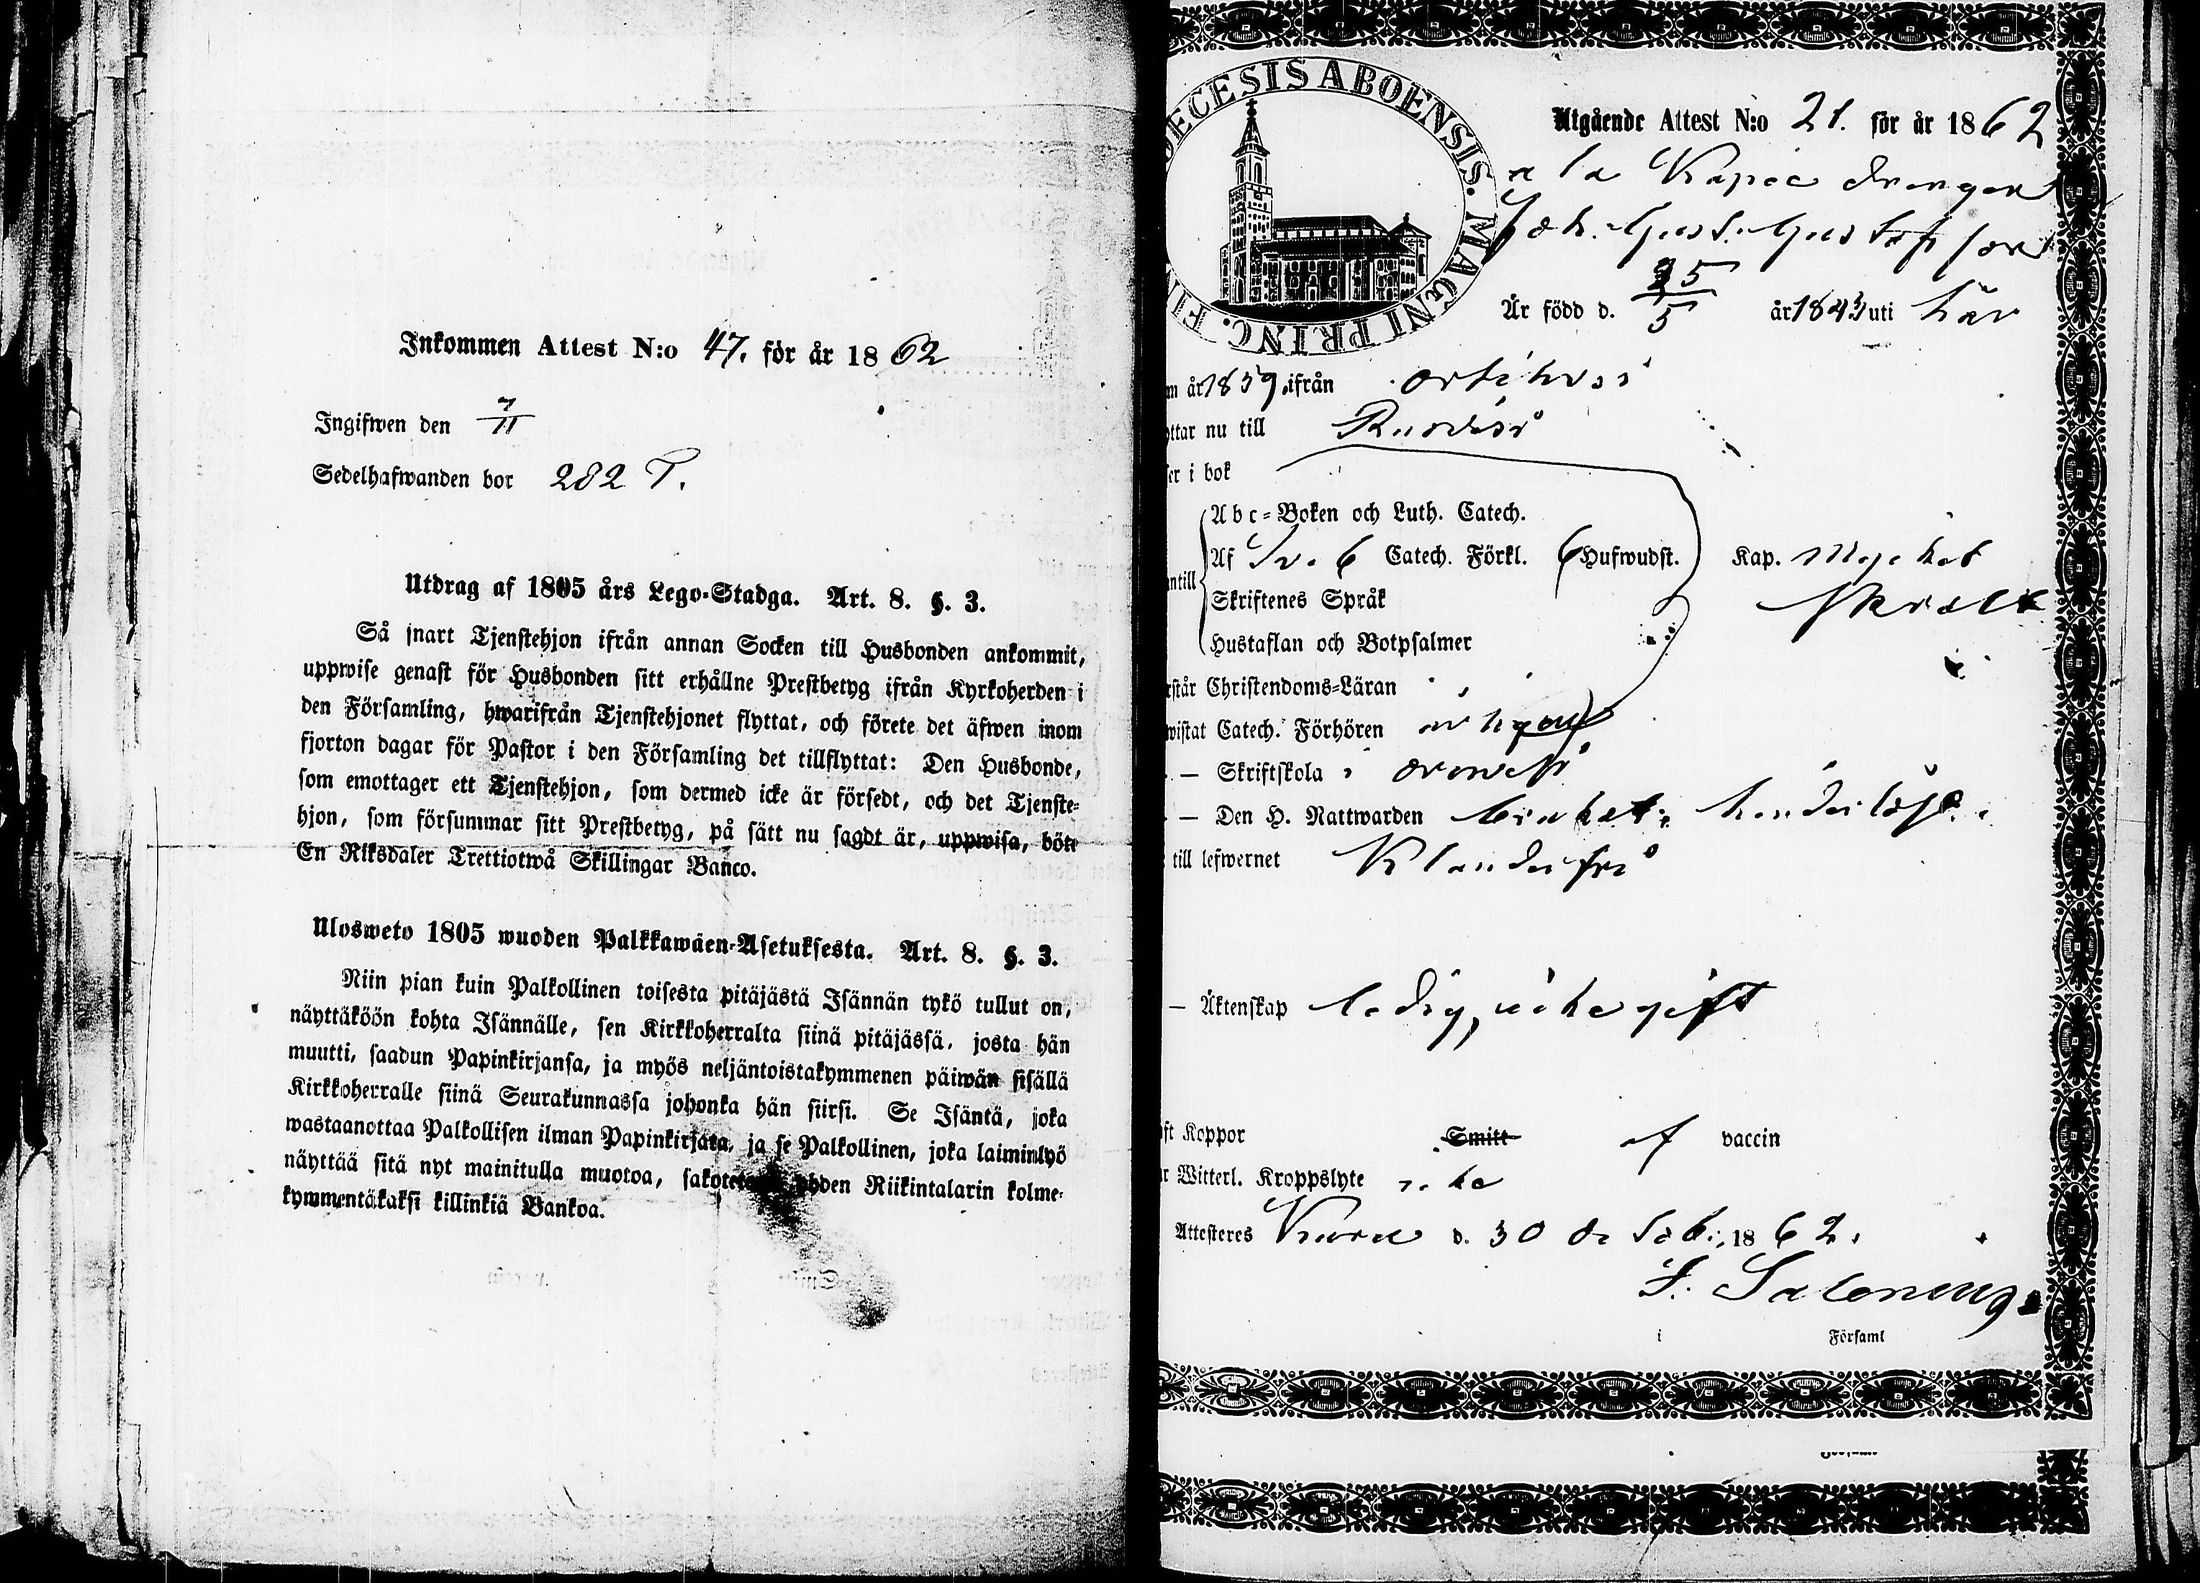 Inkommen Attest N:o 47. för år 1862
Ingifwen den 7/11
Sedelhafwanden bor 282 T.
Utdrag af 1805 års Lego-Stadga. Art. 8. §. 3.
Så snart Tjenstehjon ifrån annan Socken till Husbonden ankommit,
uppwise genast för Husbonden sitt erhållne Prestbetyg ifrån Kyrkoherden i
den Församling, hwarifrån Tjenstehjonet flyttat, och förete det äfwen inom
fjorton dagar för Pastor i den Församling det tillflyttat: Den Husbonde,
som emottager ett Tjenstehjon, som dermed icke är försedt, och det Tjenste-
hjon, som försummar sitt Prestbetyg, på sätt nu sagdt är, uppwisa, böte
En Riksdaler Trettiotwå Skillingar Banco.
Ulosweto 1805 wuoden Palkkawäen-Asetuksesta. Art. 8. §. 3.
Niin pian kuin Palkollinen toisesta pitäjästä Isännän tykö tullut on,
näyttäköön kohta Isännälle, sen Kirkkoherralta siinä pitäjässä, josta hän
muutti, saadun Papinkirjansa, ja myös neljäntoistakymmenen päiwän sisällä
Kirkkoherralle siinä Seurakunnassa johonka hän siirsi. Se Isäntä, joka
wastaanottaa Palkollisen ilman Papinkirjata, ja se Palkollinen, joka laiminlyö
näyttää sitä nyt mainitulla muotoa, yhden Riikintalarin kolme-
kymmentäkaksi killinkiä Bankoa.
ECESIS ABOENSIS. MAGNI PRINC. FI
Utgående Attest N:o 21. för år 1862
drengen
Joh. Gust. Gustafsson
Är född d. 25/5 år 1843 uti här
m år 1859 ifrån
ttar nu till Ruovesi
er i bok
Abc-Boken och Luth. Catech.
ntill Af Sv. 6 Catech. Förkl. 6 Hufwudst. Kap.
Skriftenes Språk
Hustaflan och Botpsalmer
rstår Christendoms-Läran
wistat Catech. Förhören
— Skriftskola i
— Den H. Nattwarden
till lefwernet Klanderfri
— Äktenskap ledig, icke gift
ft Koppor Smitt af vaccin
r Witterl. Kroppslyte icke
Attesteres Kuru d. 30 Octob. 1862.
i Församl